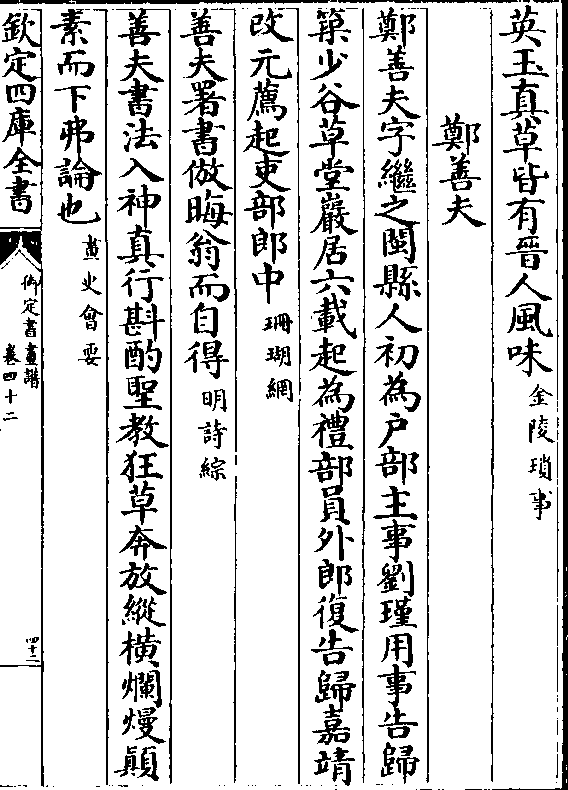 英玉真草皆有晉人風味金陵瑣事
鄭善夫
鄭善夫字繼之閩縣人初為户部主事劉瑾用事告歸
築少谷草堂巖居六載起為禮部員外郎復告歸嘉靖
改元薦起吏部郎中珊瑚網
善夫署書倣晦翁而自得明詩綜
善夫書法入神真行斟酌聖教狂草奔放縱橫爛熳顛
素而下弗論也畫史會要
欽定四庫全書
御定書畫譜
卷四十二
四十二